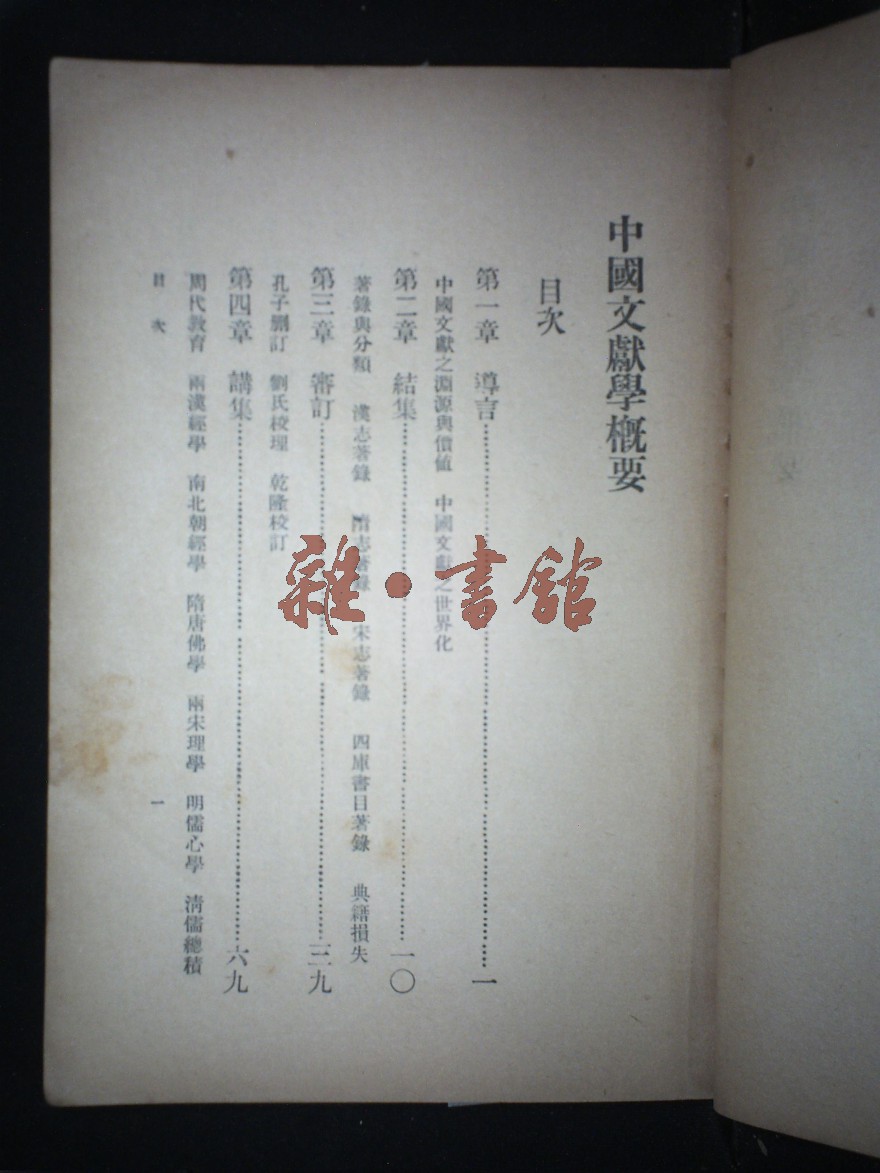 中國文獻學概要
目次
第一章 導言……一
中國文獻之淵源與價値 中國文獻之世界化
第二章 結集……一〇
著錄與分類 漢志著錄 隋志著錄 宋志著錄 四庫書目著錄 典籍損失
第三章 審訂……三九
孔子刪訂 劉氏校理 乾隆校訂
第四章 講集……六九
周代敎育 兩漢經學 南北朝經學 隋唐佛學 兩宋理學 明儒心學 淸儒總積
目次 一
雜·書館